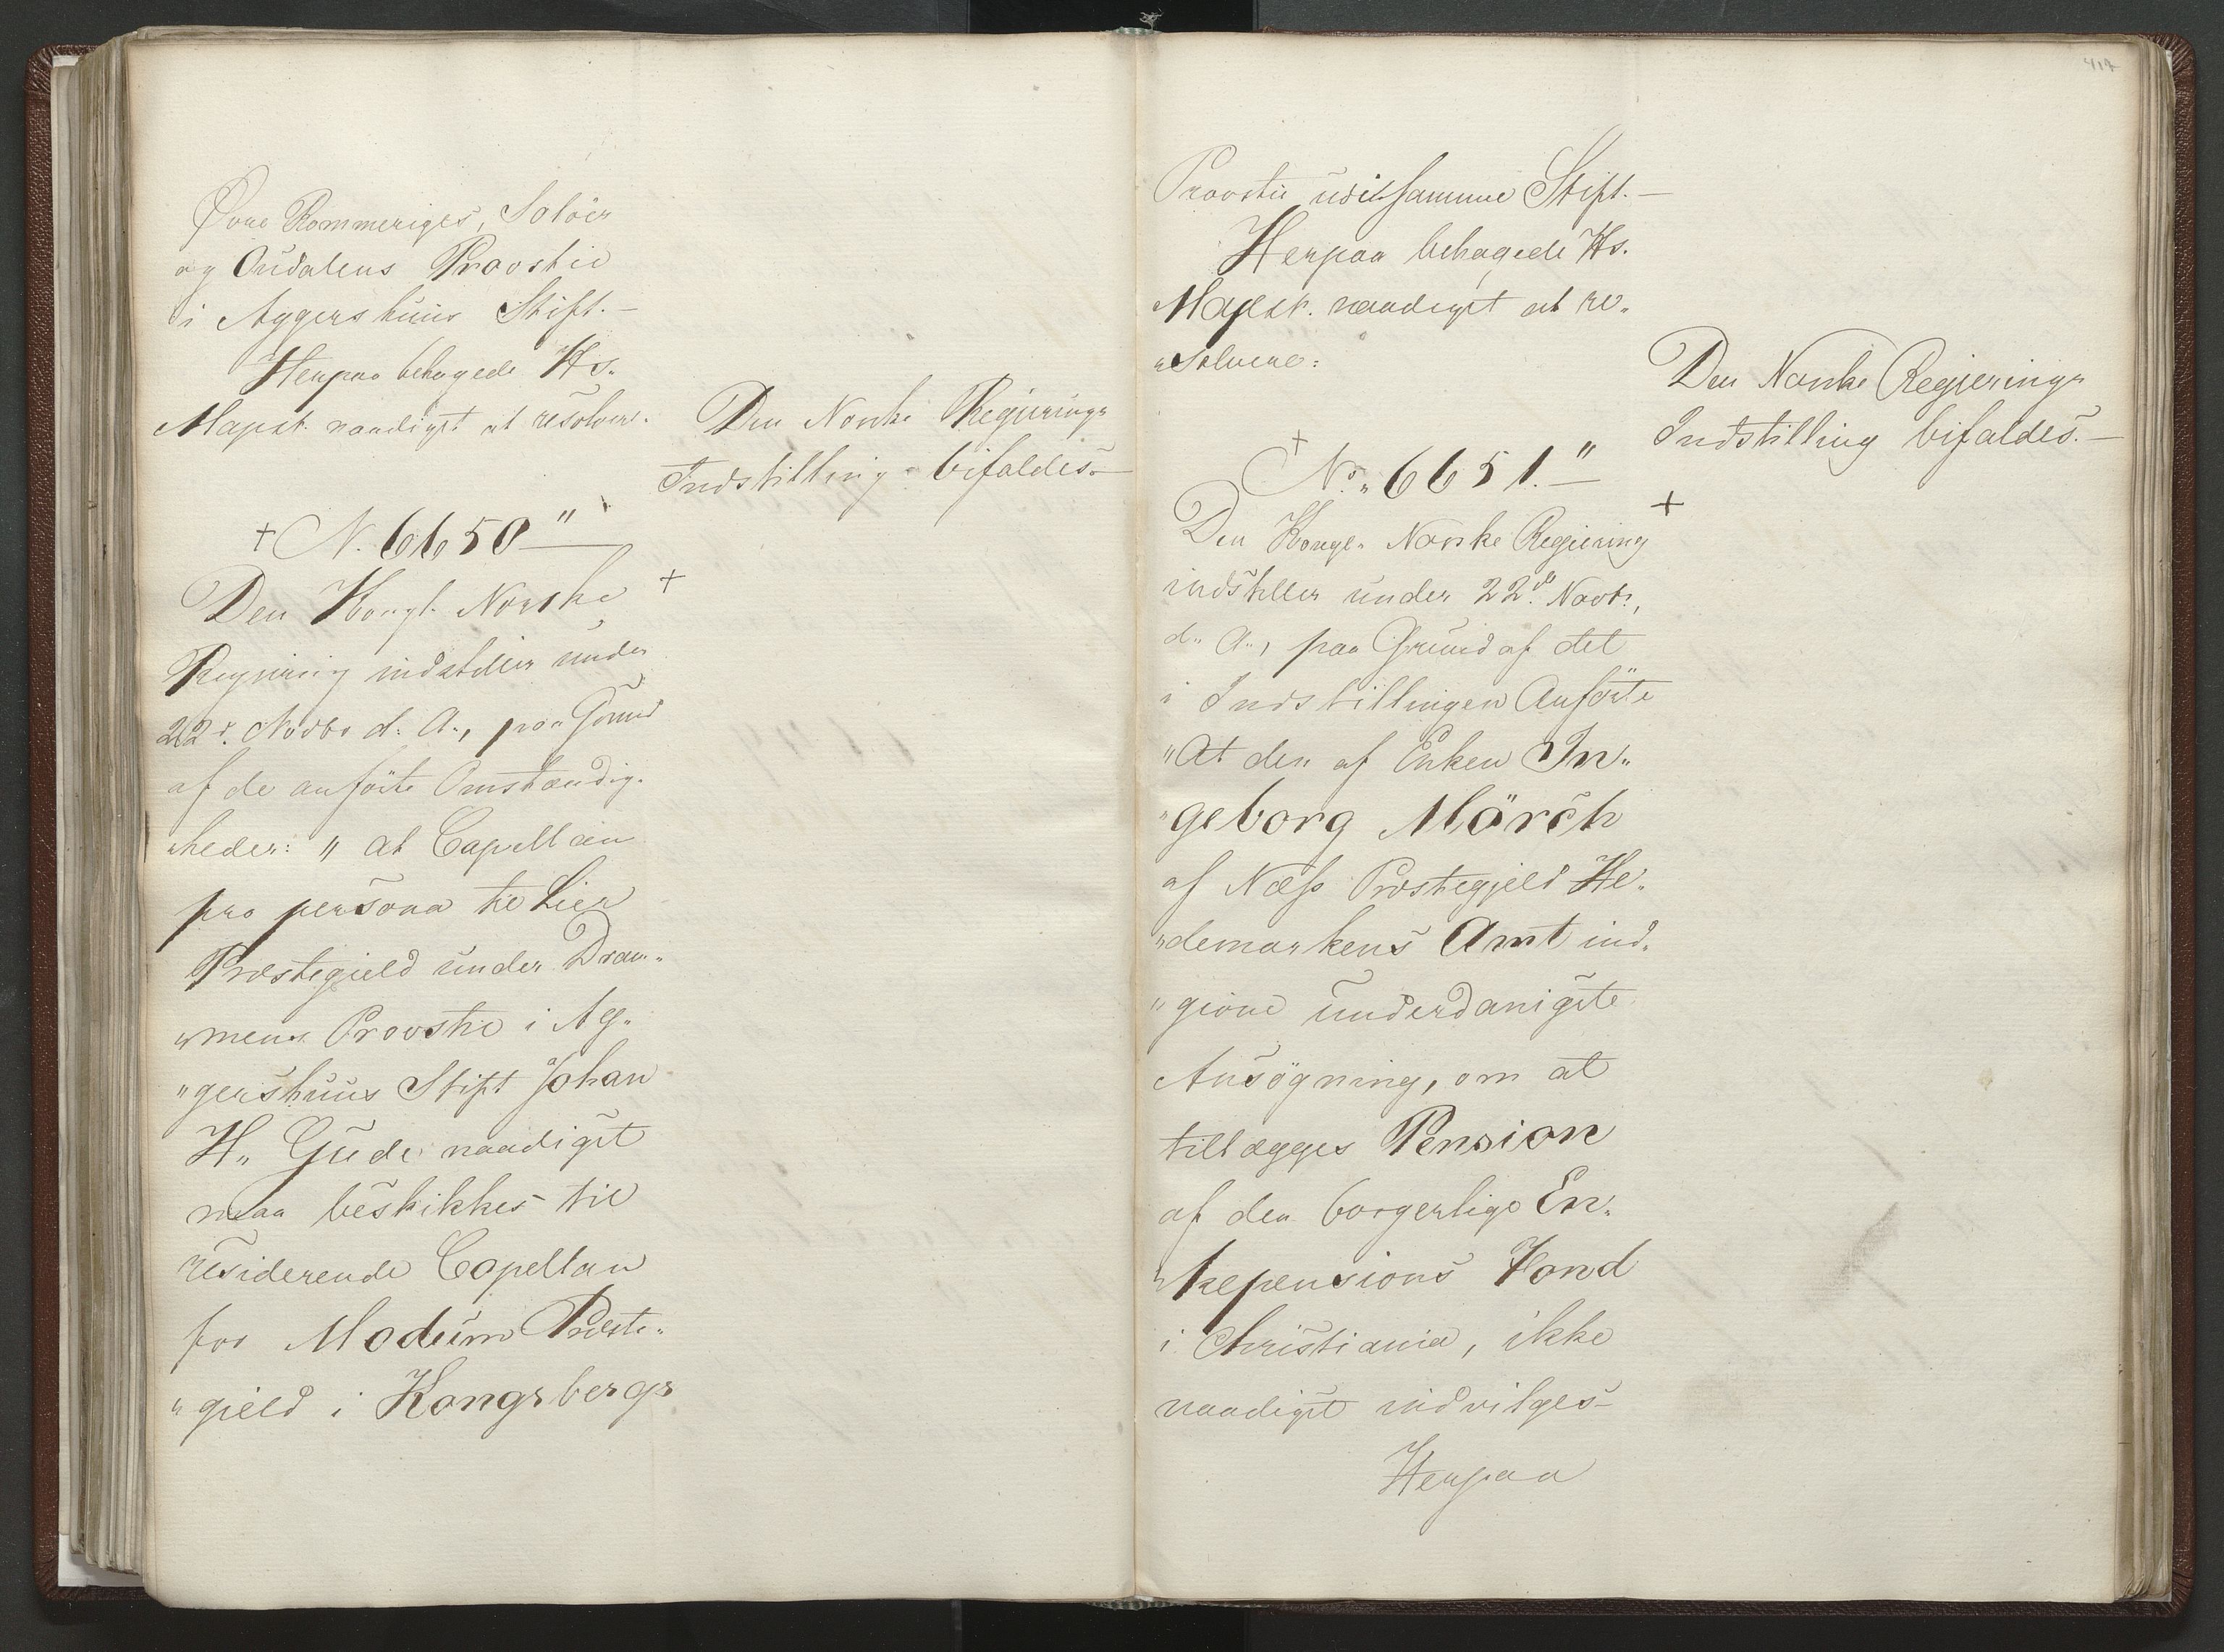 Øvre Rommeriges, Soløer
og Oudalens Provstie
i Aggershuus Stift.—
Herpaa behagede Hs.
Majest. naadigst at resolvere.
Den Norske Regjerings
Indstilling bifaldes.—
+ N. 6650"
Den Kongl. Norske +
Regjering indstiller under
22d. Novbr d. A., paa Grund
af de anförte Omstændig-
„heder: „ at Capellan
pro persona til Lier
Præstegjeld under Dram„
„mens Provstie i Ag„
„gershuus Stift Johan
H„ Gude naadigst
maa beskikkes til
residerende Capellan
for Modum Præste„
„gjeld i Kongsbergs
417
Provstie udi samme Stift.—
Herpaa behagede Hs.
Majest. naadigst at re„
„solvere:
Den Norske Regjerings
Indstilling bifaldes.—
+
No„ 6651."
+
Den Kongl. Norske Regjering
indstiller under 22d. Novbr.,
d„ A„, paa Grund af det
i Indstillingen Anförte
„At den af Enken In„
„geborg Mörch
af Næss Præstegjeld He„
„demarkens Amt ind„
„givne underdanigste
Ansögning, om at
tillægges Pension
af den borgerlige En„
„kepensions Fond
i Christiania, ikke
naadigst indvilges—
Herpaa